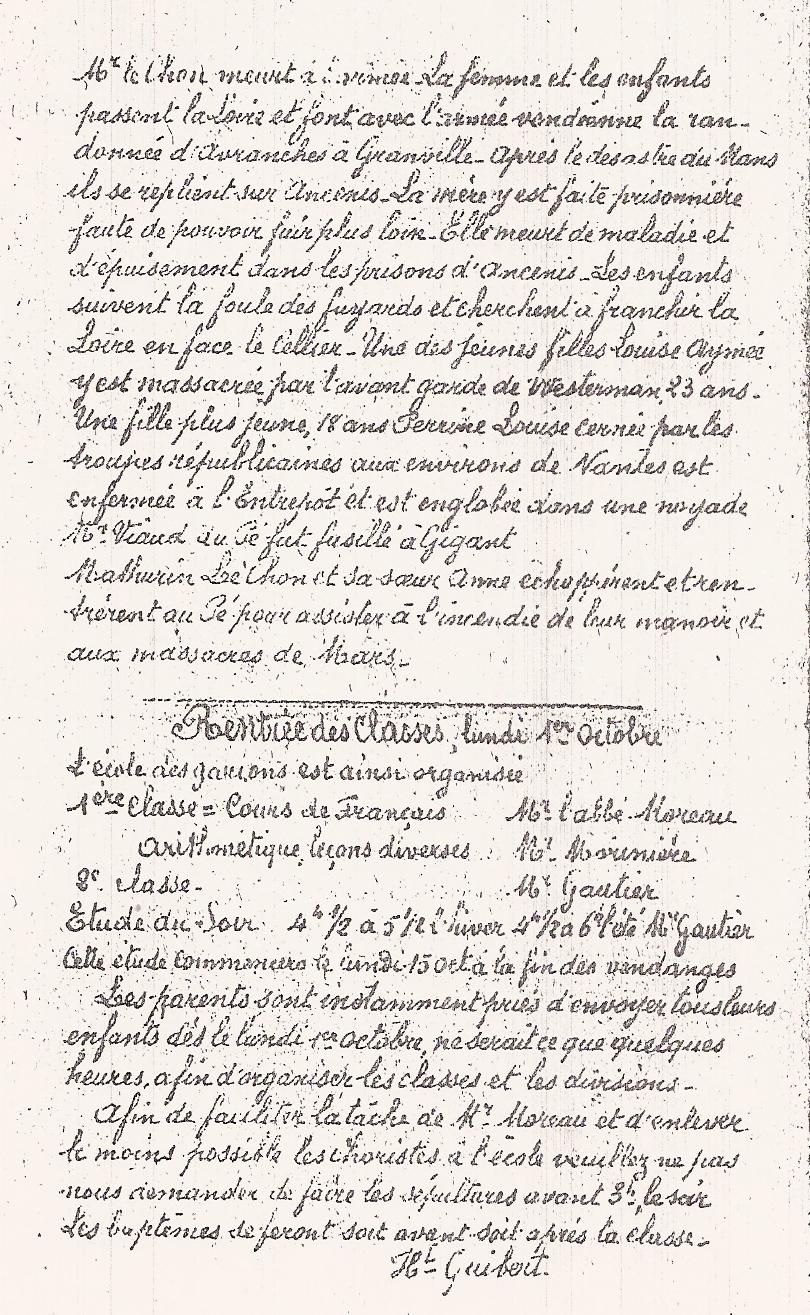 Mr le Chon meurt à l'armée. La femme et les enfants
passent la Loire et font avec l'armée vendéenne la ran-
donnée d'Avranches à Granville. Après le désastre du Mans
ils se replient sur Ancenis. La mère y est faite prisonnière
faute de pouvoir fuir plus loin. Elle meurt de maladie et
d'épuisement dans les prisons d'Ancenis. Les enfants
suivent la foule des fuyards et cherchent à franchir la
Loire en face le Cellier. Une des jeunes filles Louise Aymée
y est massacrée par l'avant garde de Westerman 23 ans.
Une fille plus jeune, 18 ans Perrine Louise cernée par les
troupes républicaines aux environs de Nantes est
enfermée à l'Entrepôt et est englobée dans une noyade
Mr Viaud du Pé fut fusillé à Gigant
Mathurin Le Chon et sa sœur Anne échappèrent et ren-
trèrent au Pé pour assister à l'incendie de leur manoir et
aux massacres de Mars.
Rentrée des Classes, lundi 1er Octobre
L'école des garçons est ainsi organisée
1ère Classe = Cours de Français Mr l'abbé Moreau
Arithmétique, leçons diverses Mr Mournière
2e classe. Mr Gautier
Etude du Soir 4h 1/2 à 5 1/2 l'hiver 4h 1/2 à 6h l'été Mr Gautier
Cette étude commencera le lundi 15 oct à la fin des vendanges
Les parents sont instamment priés d'envoyer tous leurs
enfants dès le lundi 1er octobre, ne serait ce que quelques
heures, afin d'organiser les classes et les divisions.
Afin de faciliter la tâche de Mr Moreau et d'enlever
le moins possible les choristes à l'école veuillez ne pas
nous demander de faire les sépultures avant 3h, le soir
Les baptêmes se feront soit avant soit après la classe.
Ht Guibert.